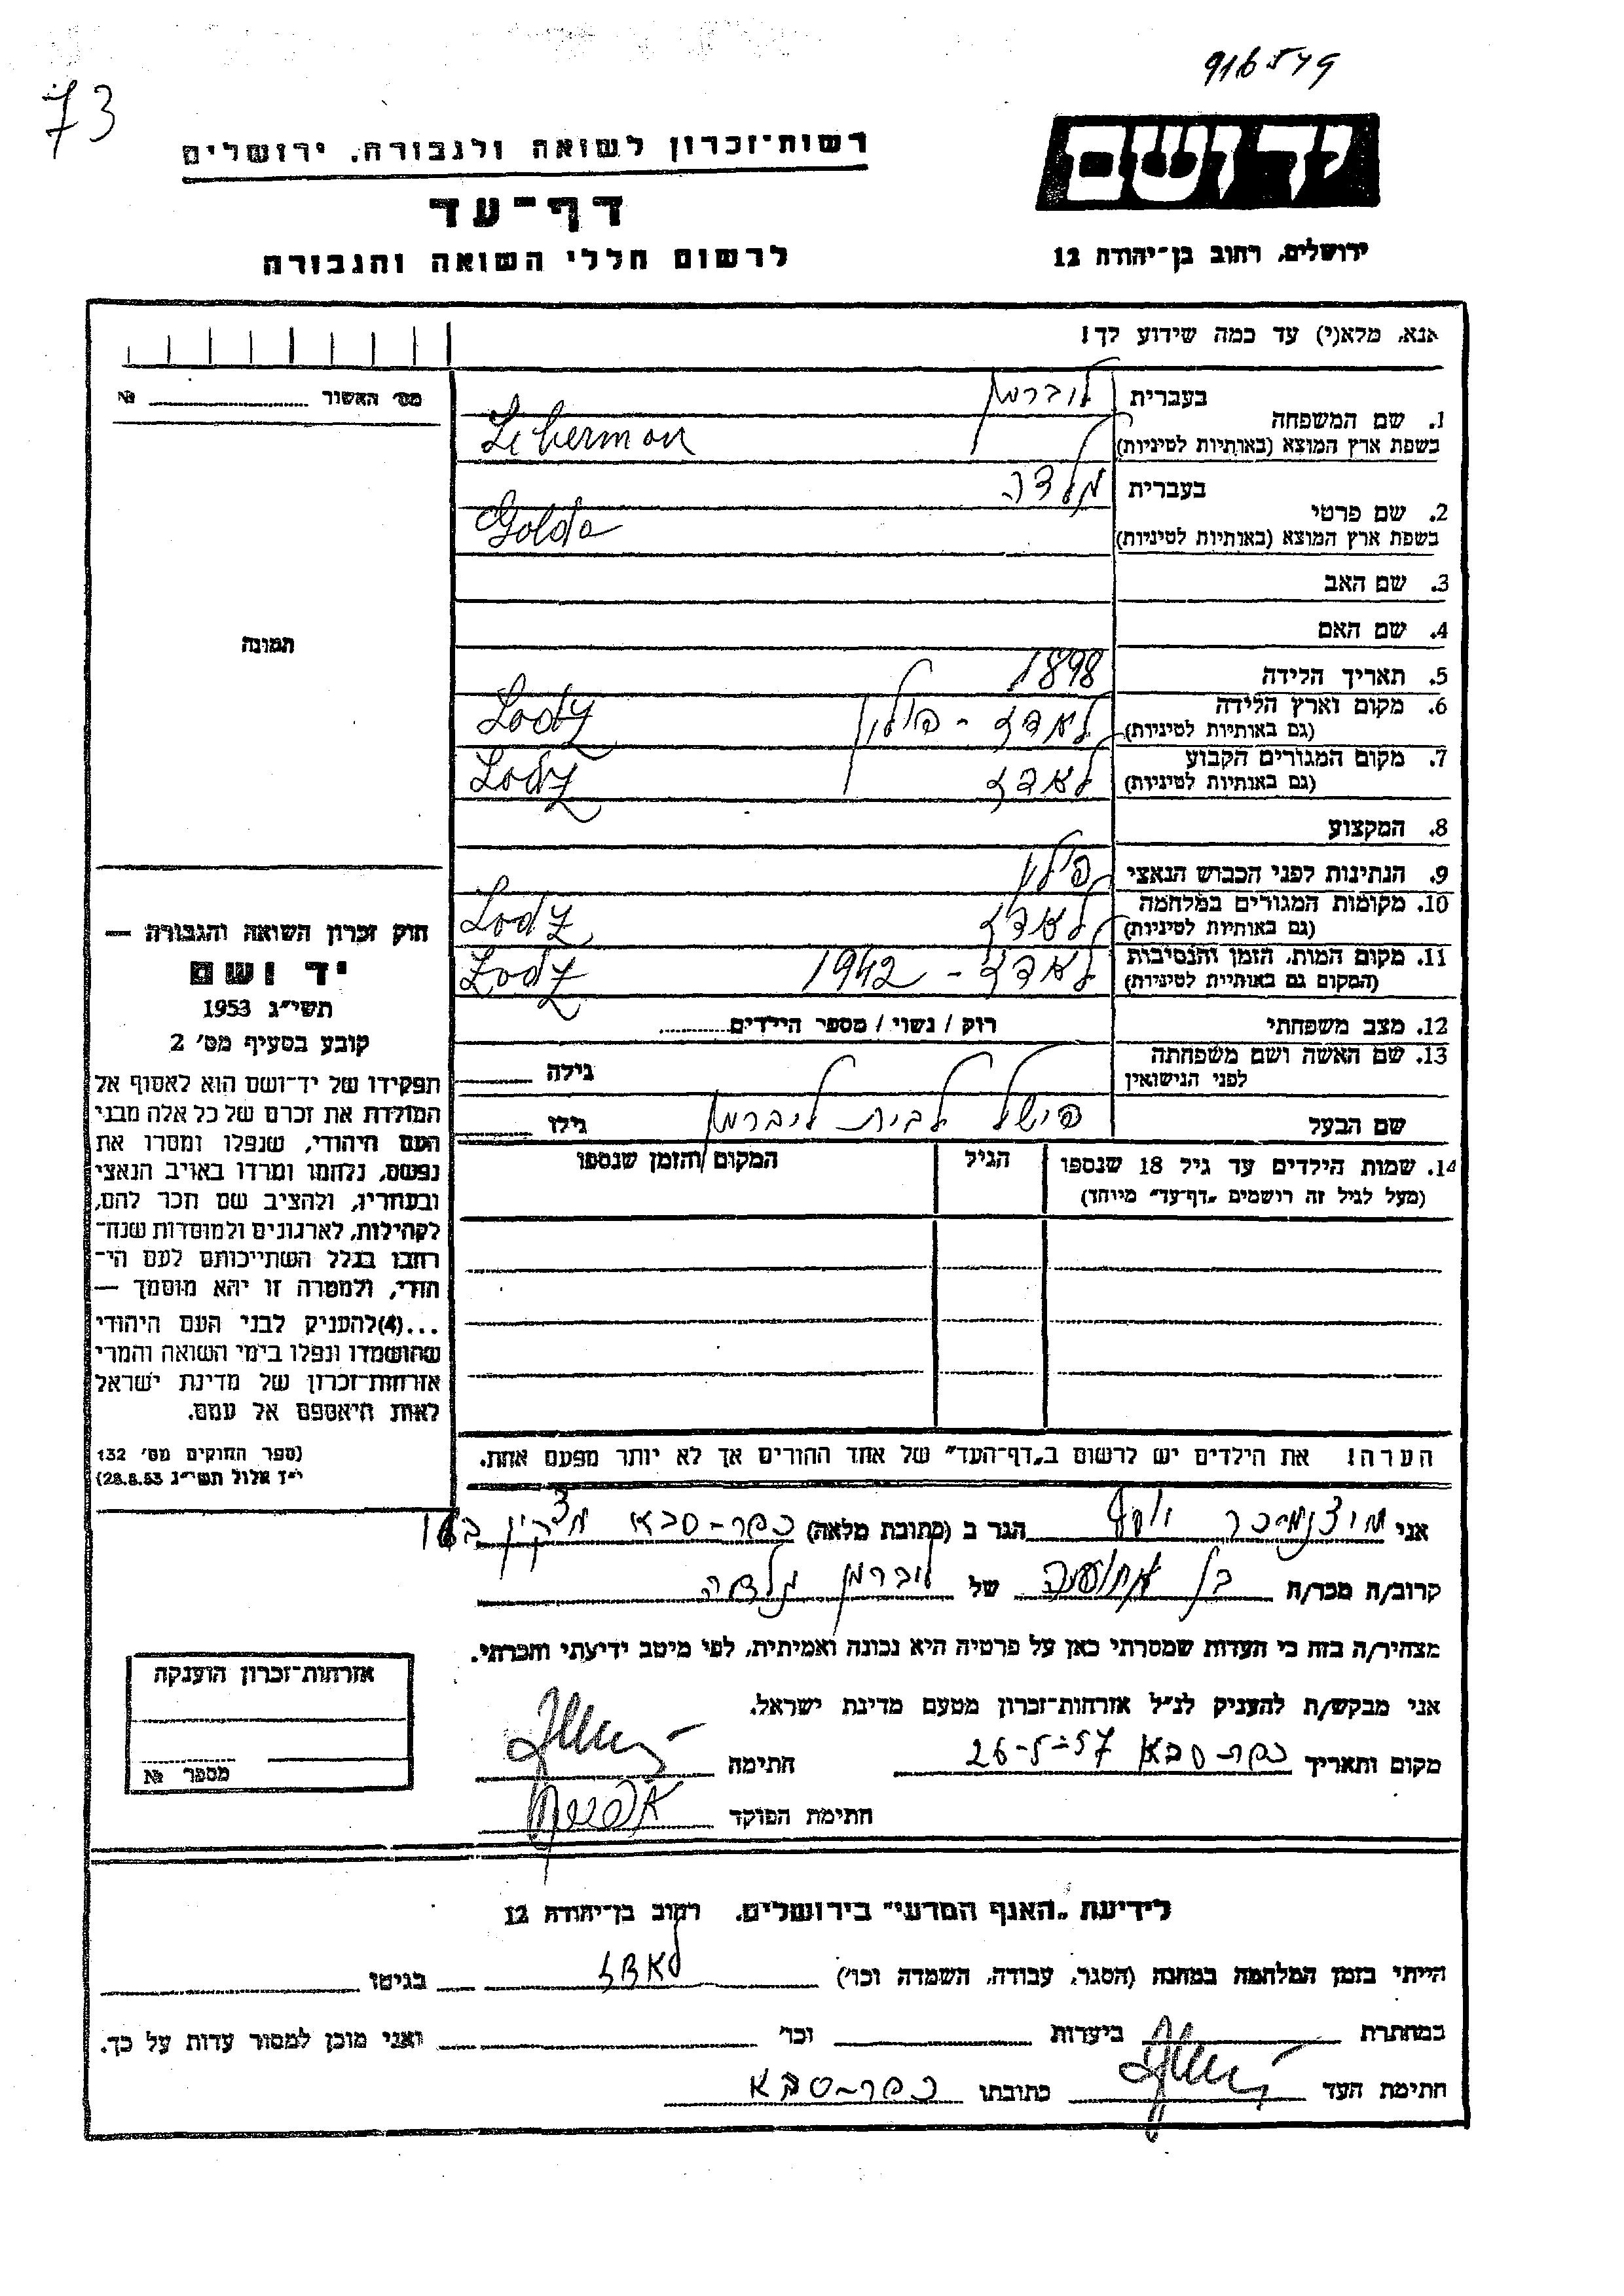 916549
73
יד ושם
ירושלים, רחוב בן-יהודה 12
רשות-זכרון לשואה ולגבורה, ירושלים
דף-עד
לרשום חללי השואה והגבורה
אנא, מלא(י) עד כמה שידוע לך!
מס׳ האשור № 
1. שם המשפחה בעברית לוברמן
בשפת ארץ המוצא (באותיות לטיניות) Leberman
2. שם פרטי בעברית גולדה
בשפת ארץ המוצא (באותיות לטיניות) Golda
3. שם האב
4. שם האם
5. תאריך הלידה 1898
6. מקום וארץ הלידה לאדז - פולין Lodz
(גם באותיות לטיניות)
7. מקום המגורים הקבוע לאדז Lodz
(גם באותיות לטיניות)
8. המקצוע
9. הנתינות לפני הכבוש הנאצי פולין
10. מקומות המגורים במלחמה לאדז Lodz
(גם באותיות לטיניות)
11. מקום המות, הזמן והנסיבות לאדז - 1942 Lodz
(המקום גם באותיות לטיניות)
12. מצב משפחתי רוק / נשוי / מספר הילדים
13. שם האשה ושם משפחתה גילה
לפני הנישואין
שם הבעל פישל לבית ליברמן גילו
14. שמות הילדים עד גיל 18 שנספו הגיל המקום והזמן שנספו
(מעל לגיל זה רושמים „דף-עד״ מיוחד)
הערה! את הילדים יש לרשום ב„דף-העד״ של אחד ההורים אך לא יותר מפעם אחת.
תמונה
חוק זכרון השואה והגבורה —
יד ושם
תשי״ג 1953
קובע בסעיף מס׳ 2
תפקידו של יד-ושם הוא לאסוף אל
המולדת את זכרם של כל אלה מבני
העם היהודי, שנפלו ומסרו את
נפשם, נלחמו ומרדו באויב הנאצי
ובעוזריו, ולהציב שם וזכר להם,
לקהילות, לארגונים ולמוסדות שנח-
רבו בגלל השתייכותם לעם הי-
הודי, ולמטרה זו יהא מוסמך —
...(4)להעניק לבני העם היהודי
שהושמדו ונפלו בימי השואה והמרי
אזרחות-זכרון של מדינת ישראל
לאות היאספם אל עמם.
(ספר החוקים מס׳ 132
י״ד אלול תשי״ג 28.8.53)
אני הגר ב (כתובת מלאה) כפר-סבא
קרוב/ה מכר/ה בן של לוברמן גולדה
מצהיר/ה בזה כי העדות שמסרתי כאן על פרטיה היא נכונה ואמיתית, לפי מיטב ידיעתי והכרתי.
אני מבקש/ת להעניק לנ״ל אזרחות-זכרון מטעם מדינת ישראל.
מקום ותאריך כפר-סבא 26-5-57 חתימה
חתימת הפוקד
אזרחות-זכרון הוענקה
מספר №
לידיעת „האגף המדעי״ בירושלים, רחוב בן-יהודה 12
הייתי בזמן המלחמה במחנה (הסגר, עבודה, השמדה וכו׳) לאדז בגיטו
במחתרת ביערות וכו׳ ואני מוכן למסור עדות על כך.
חתימת העד כתובתו כפר-סבא